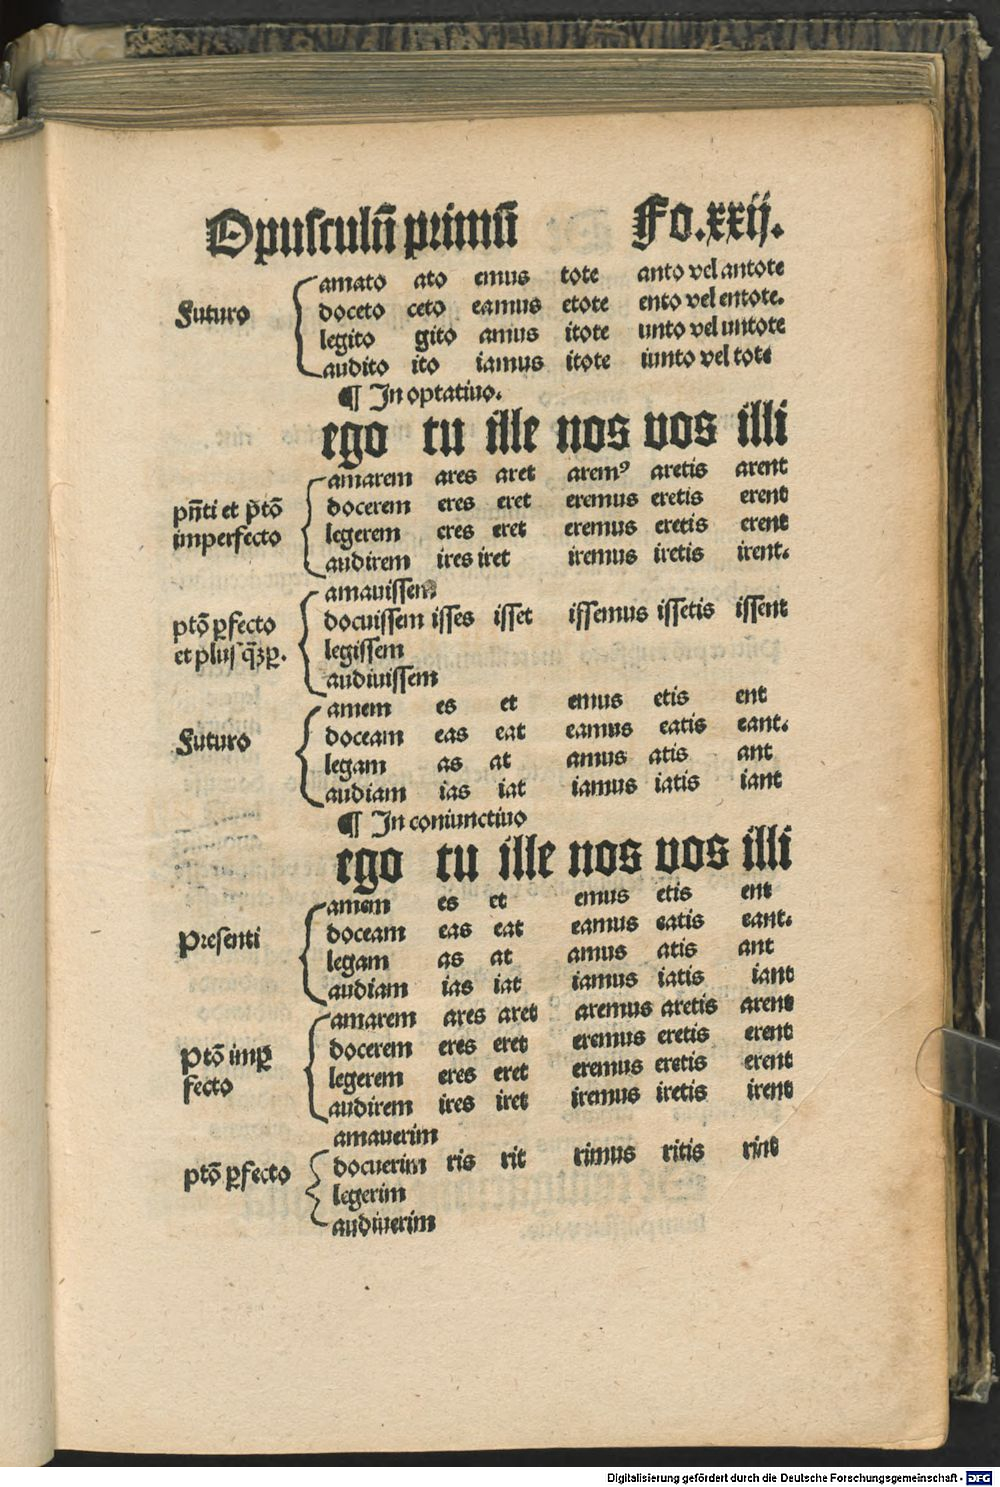 Opusculū primū Fo.xxij.
amato ato emus tote anto vel antote
Futuro doceto ceto eamus etote ento vel entote.
legito gito amus itote unto vel untote
audito ito iamus itote iunto vel tote
¶ In optatiuo.
ego tu ille nos vos illi
amarem ares aret aremꝰ aretis arent
pn̄ti et p̄tō docerem eres eret eremus eretis erent
imperfecto legerem eres eret eremus eretis erent
audirem ires iret iremus iretis irent.
amauissem
ptō ꝑfecto docuissem isses isset issemus issetis issent
et plusq̄ꝫꝑ. legissem
audiuissem
amem es et emus etis ent
Futuro doceam eas eat eamus eatis eant.
legam as at amus atis ant
audiam ias iat iamus iatis iant
¶ In coniunctiuo
ego tu ille nos vos illi
amem es et emus etis ent
Presenti doceam eas eat eamus eatis eant.
legam as at amus atis ant
audiam ias iat iamus iatis iant
amarem ares aret aremus aretis arent
Ptō imꝑ docerem eres eret eremus eretis erent
fecto legerem eres eret eremus eretis erent
audirem ires iret iremus iretis irent
amauerim
ptō ꝑfecto docuerim ris rit rimus ritis rint
legerim
audiuerim
Digitalisierung gefördert durch die Deutsche Forschungsgemeinschaft - DFG